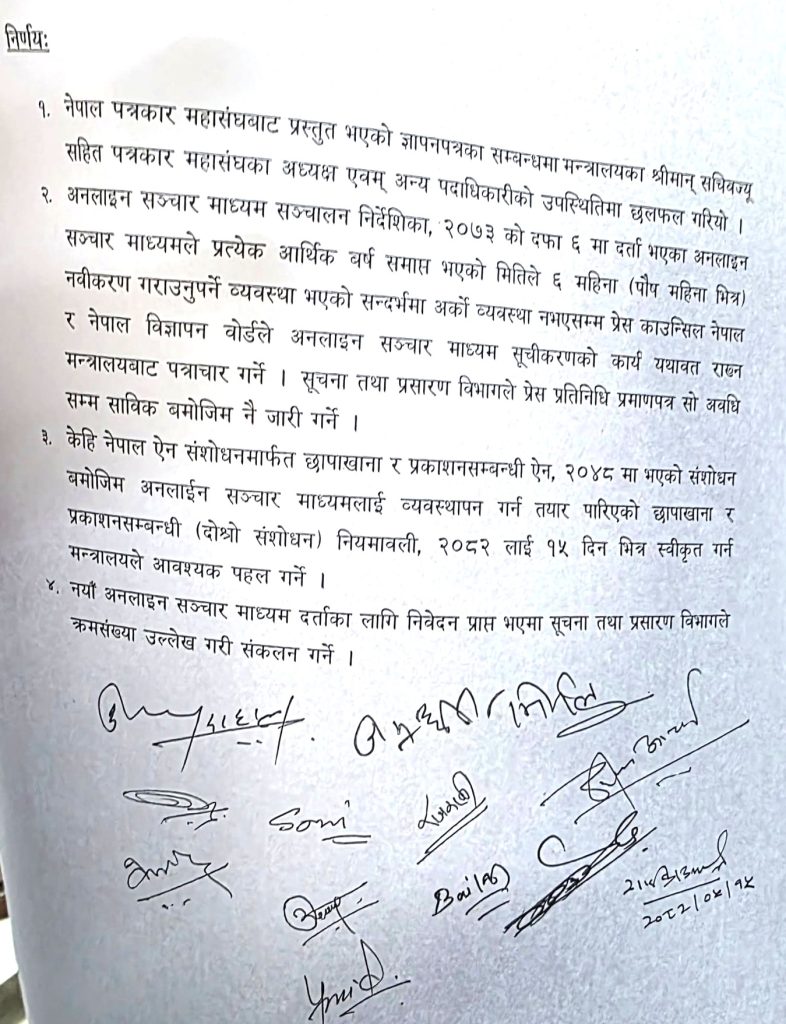 निर्णयः
१. नेपाल पत्रकार महासंघबाट प्रस्तुत भएको ज्ञापनपत्रका सम्बन्धमा मन्त्रालयका श्रीमान् सचिवज्यू
सहित पत्रकार महासंघका अध्यक्ष एवम् अन्य पदाधिकारीको उपस्थितिमा छलफल गरियो ।
२. अनलाइन सञ्चार माध्यम सञ्चालन निर्देशिका, २०७३ को दफा ६ मा दर्ता भएका अनलाइन
सञ्चार माध्यमले प्रत्येक आर्थिक वर्ष समाप्त भएको मितिले ६ महिना (पौष महिना भित्र)
नवीकरण गराउनुपर्ने व्यवस्था भएको सन्दर्भमा अर्को व्यवस्था नभएसम्म प्रेस काउन्सिल नेपाल
र नेपाल विज्ञापन वोर्डले अनलाइन सञ्चार माध्यम सूचीकरणको कार्य यथावत राख्न
मन्त्रालयबाट पत्राचार गर्ने । सूचना तथा प्रसारण विभागले प्रेस प्रतिनिधि प्रमाणपत्र सो अवधि
सम्म साविक बमोजिम नै जारी गर्ने ।
३. केहि नेपाल ऐन संशोधनमार्फत छापाखाना र प्रकाशनसम्बन्धी ऐन, २०४८ मा भएको संशोधन
बमोजिम अनलाईन सञ्चार माध्यमलाई व्यवस्थापन गर्न तयार पारिएको छापाखाना र
प्रकाशनसम्बन्धी (दोश्रो संशोधन) नियमावली, २०८२ लाई १५ दिन भित्र स्वीकृत गर्न
मन्त्रालयले आवश्यक पहल गर्ने ।
४. नयाँ अनलाइन सञ्चार माध्यम दर्ताका लागि निवेदन प्राप्त भएमा सूचना तथा प्रसारण विभागले
क्रमसंख्या उल्लेख गरी संकलन गर्ने ।
Soni
२०८२/०५/१५